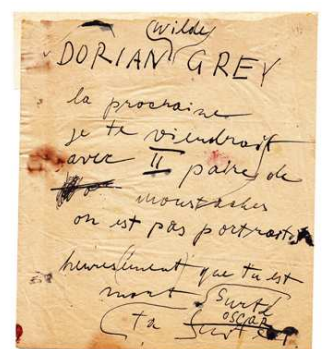 (Wilde)
DORIAN GREY
la prochaine
je te viendrait
avec II paire de
moustaches
on est pas portraits
heureslement que tu est
mort
OSCAR
Ta